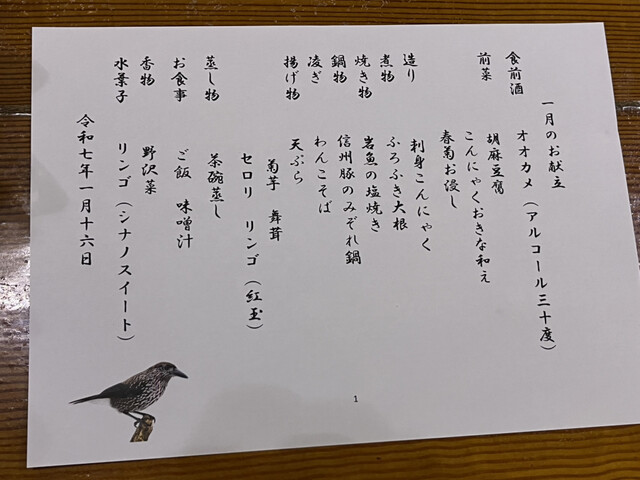 一月のお献立
食前酒 オオカメ（アルコール三十度）
前菜 胡麻豆腐
こんにゃくおきな和え
春菊お浸し
造り 刺身こんにゃく
煮物 ふろふき大根
焼き物 岩魚の塩焼き
鍋物 信州豚のみぞれ鍋
凌ぎ わんこそば
揚げ物 天ぷら
菊芋 舞茸
セロリ リンゴ（紅玉）
蒸し物 茶碗蒸し
お食事 ご飯 味噌汁
香物 野沢菜
水菓子 リンゴ（シナノスイート）
令和七年一月十六日
1